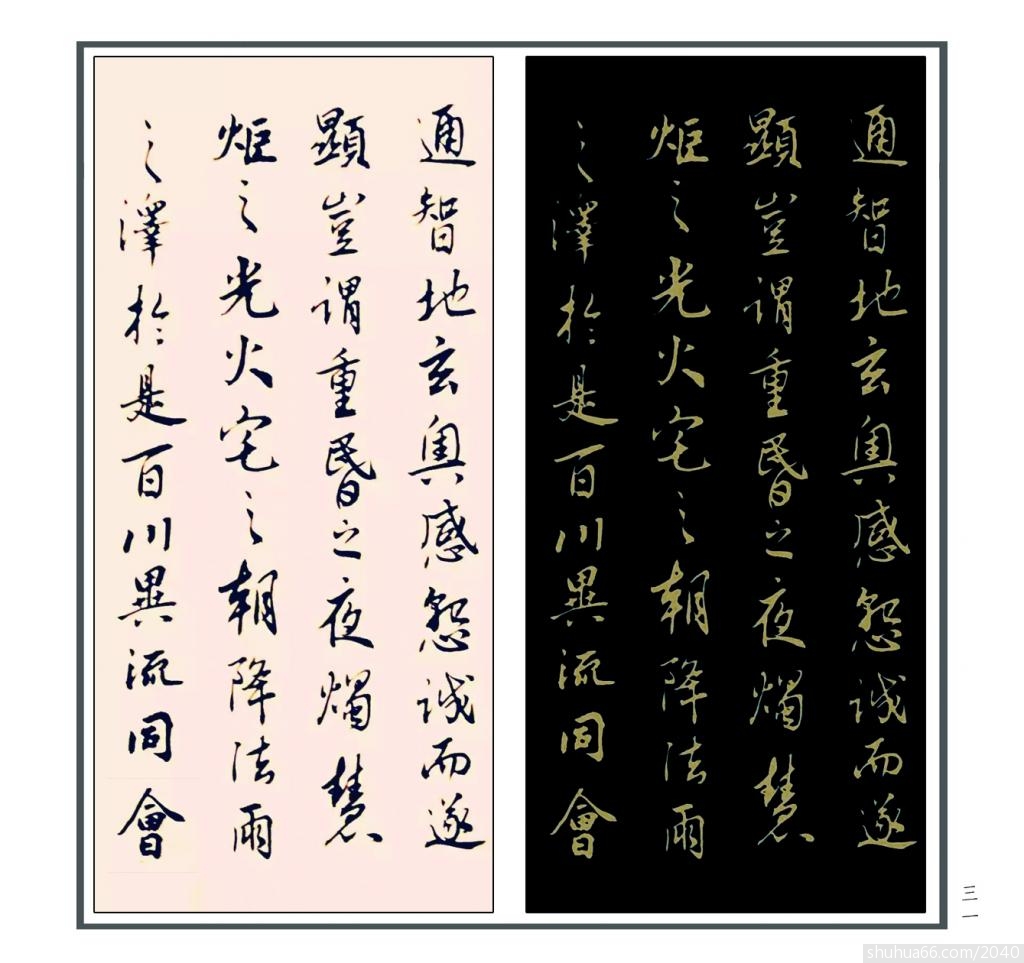 通智地玄奧感懇誠而遂
顯豈謂重昬之夜燭慧
炬之光火宅之朝降法雨
之澤於是百川異流同會
通智地玄奧感懇誠而遂
顯豈謂重昬之夜燭慧
炬之光火宅之朝降法雨
之澤於是百川異流同會
三一
shuhua66.com/2040